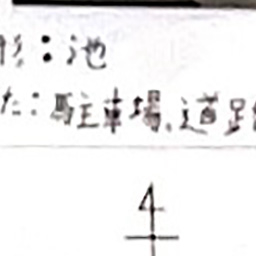 形:池
た:駐車場、道路
4